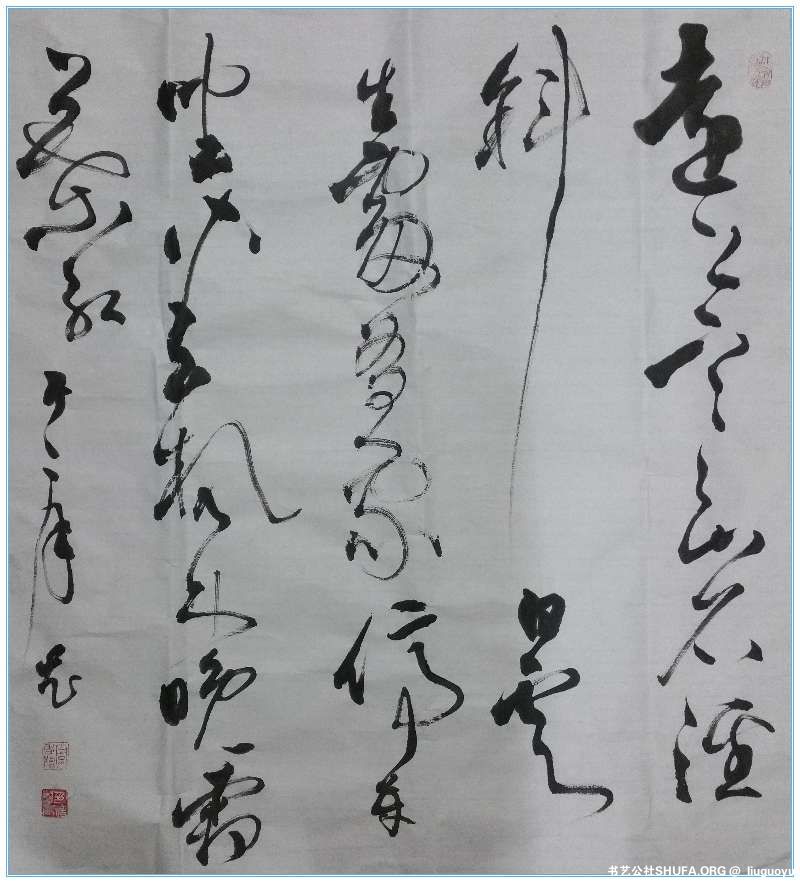 遠上寒山石徑
斜白雲
生處有人家停車
坐愛楓林晚霜
葉紅于二月花
书艺公社SHUFA.ORG @ liuguoyu